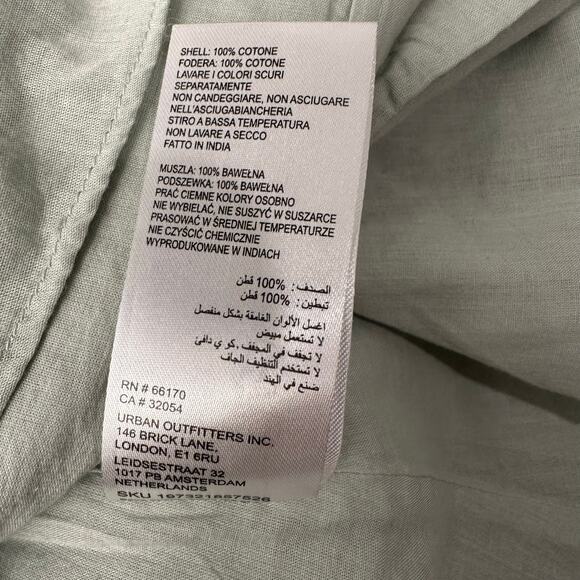 SHELL: 100% COTONE
FODERA: 100% COTONE
LAVARE I COLORI SCURI
SEPARATAMENTE
NON CANDEGGIARE, NON ASCIUGARE
NELL'ASCIUGABIANCHERIA
STIRO A BASSA TEMPERATURA
NON LAVARE A SECCO
FATTO IN INDIA
MUSZLA: 100% BAWEŁNA
PODSZEWKA: 100% BAWEŁNA
PRAĆ CIEMNE KOLORY OSOBNO
NIE WYBIELAĆ, NIE SUSZYĆ W SUSZARCE
PRASOWAĆ W ŚREDNIEJ TEMPERATURZE
NIE CZYŚCIĆ CHEMICZNIE
WYPRODUKOWANE W INDIACH
الصدف: 100% قطن
تبطين: 100% قطن
اغسل الألوان الغامقة بشكل منفصل
لا تستعمل مبيض
لا تجفف في المجفف .كو ي دافئ
لا تستخدم التنظيف الجاف
صنع في الهند
RN # 66170
CA # 32054
URBAN OUTFITTERS INC.
146 BRICK LANE,
LONDON, E1 6RU
LEIDSESTRAAT 32
1017 PB AMSTERDAM
NETHERLANDS
SKU